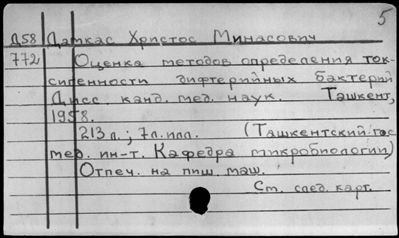 5
Д58 Даткас Христос Минасович
772 Оценка методов определения ток-
сигенности дифтерийных бактерий
Дисс. канд. мед. наук. Ташкент,
1958.
213 л.; 7 л. илл. (Ташкентский гос
мед. ин-т. Кафедра микробиологии)
Отпеч. на пиш. маш.
См. след. карт.